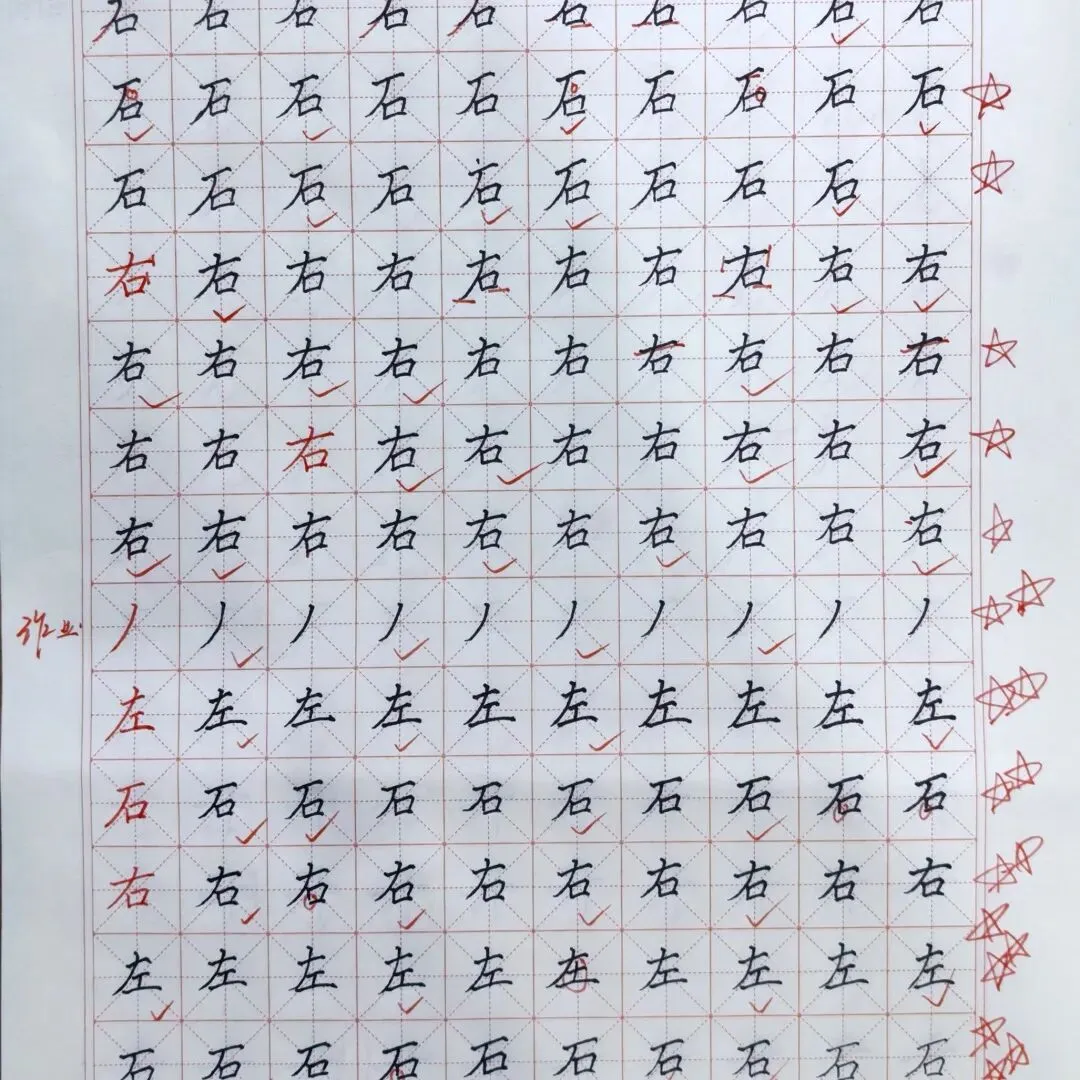 石石石石石石石石石石
石石石石石石石石石石
石石石石石石石石石
右右右右右右右右右右
右右右右右右右右右右
右右右右右右右右右右
右右右右右右右右右右
作业: 丿丿丿丿丿丿丿丿丿丿
左左左左左左左左左左
石石石石石石石石石石
右右右右右右右右右右
左左左左左左左左左左
石石石石石石石石石石